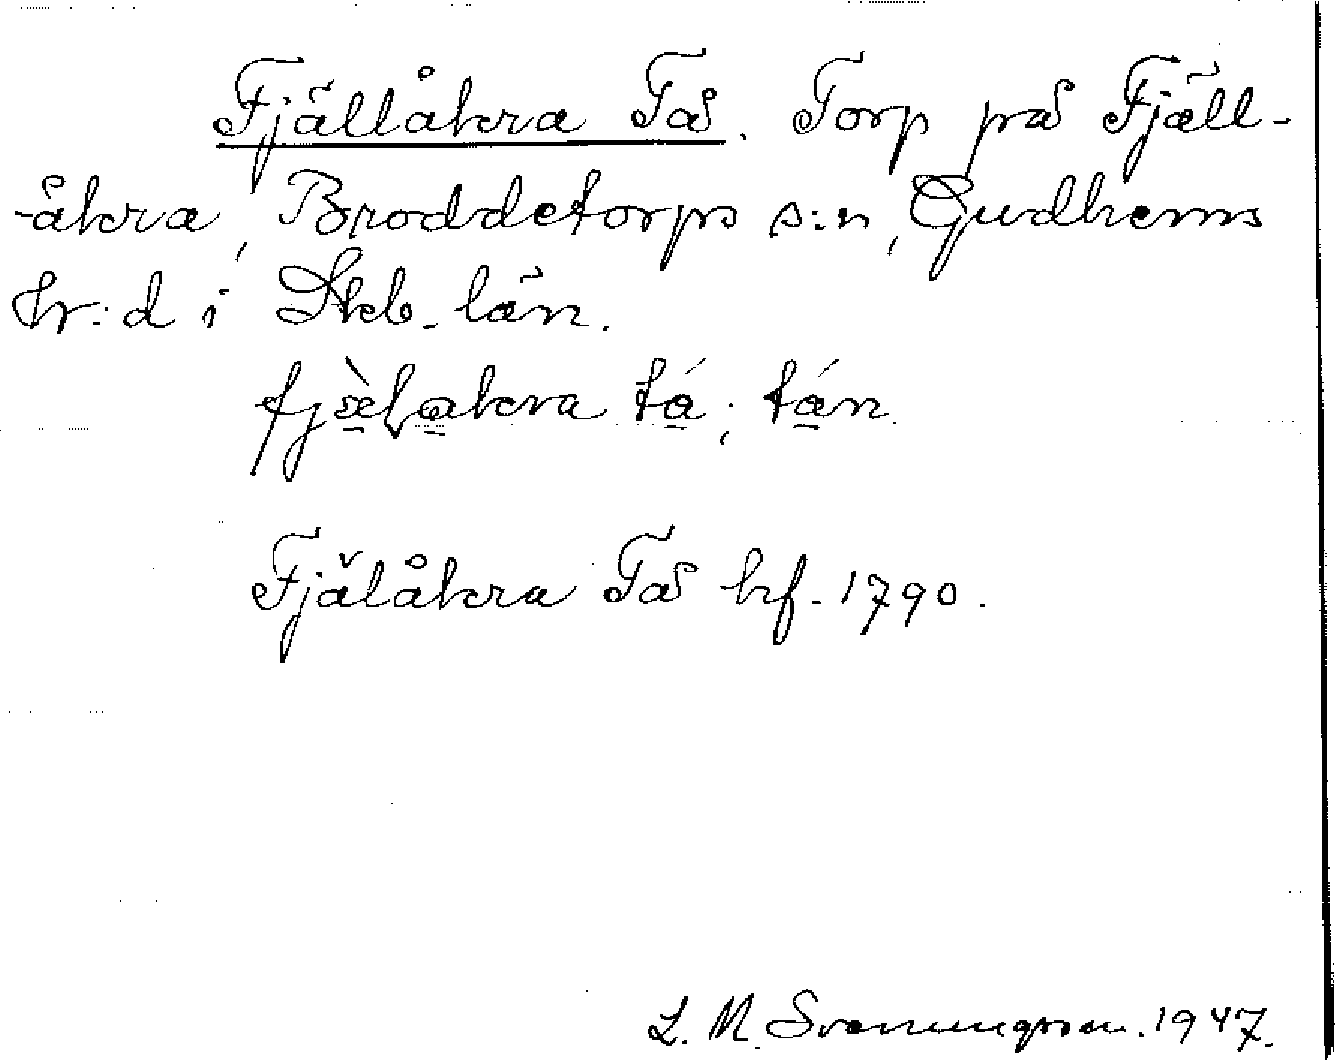 Fjällåkra Tå. Torp på Fjäll-
åkra, Broddetorps s:n, Gudhems
hr:d i Skb. län.
fjæ̀l,akra tá; tán.
Fjälåkra Tå hf. 1790.
L. M. Svenungsson. 1947.